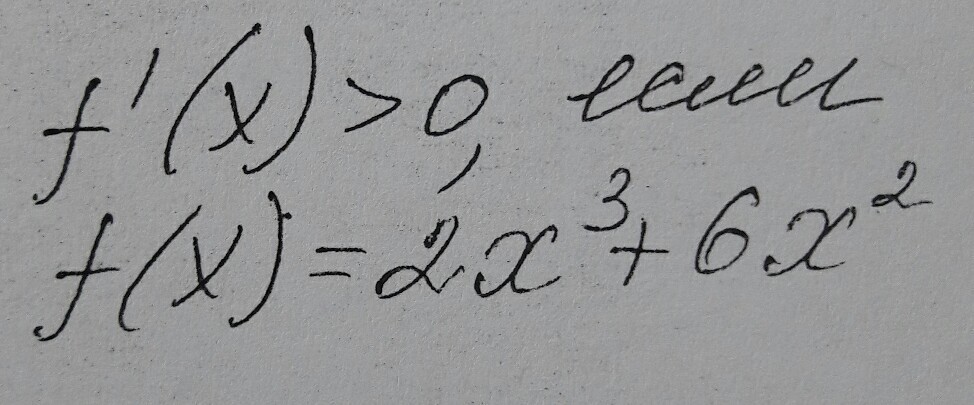 f'(x) > 0, если
f(x) = 2x³ + 6x²